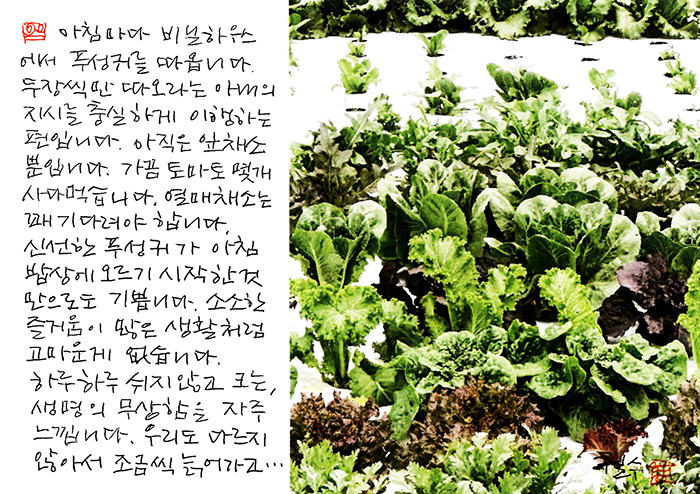 아침마다 비닐하우스
에서 푸성귀를 따옵니다.
두장씩만 따오라는 아내의
지시를 충실하게 이행하는
편입니다. 아직은 잎채소
뿐입니다. 가끔 토마토 몇개
사다먹습니다. 열매채소는
꽤 기다려야 합니다.
신선한 푸성귀가 아침
밥상에 오르기 시작한 것
만으로도 기쁩니다. 소소한
즐거움이 많은 생활처럼
고마운게 없습니다.
하루하루 쉬지않고 크는,
생명의 무상함을 자주
느낍니다. 우리도 다르지
않아서 조금씩 늙어가고…